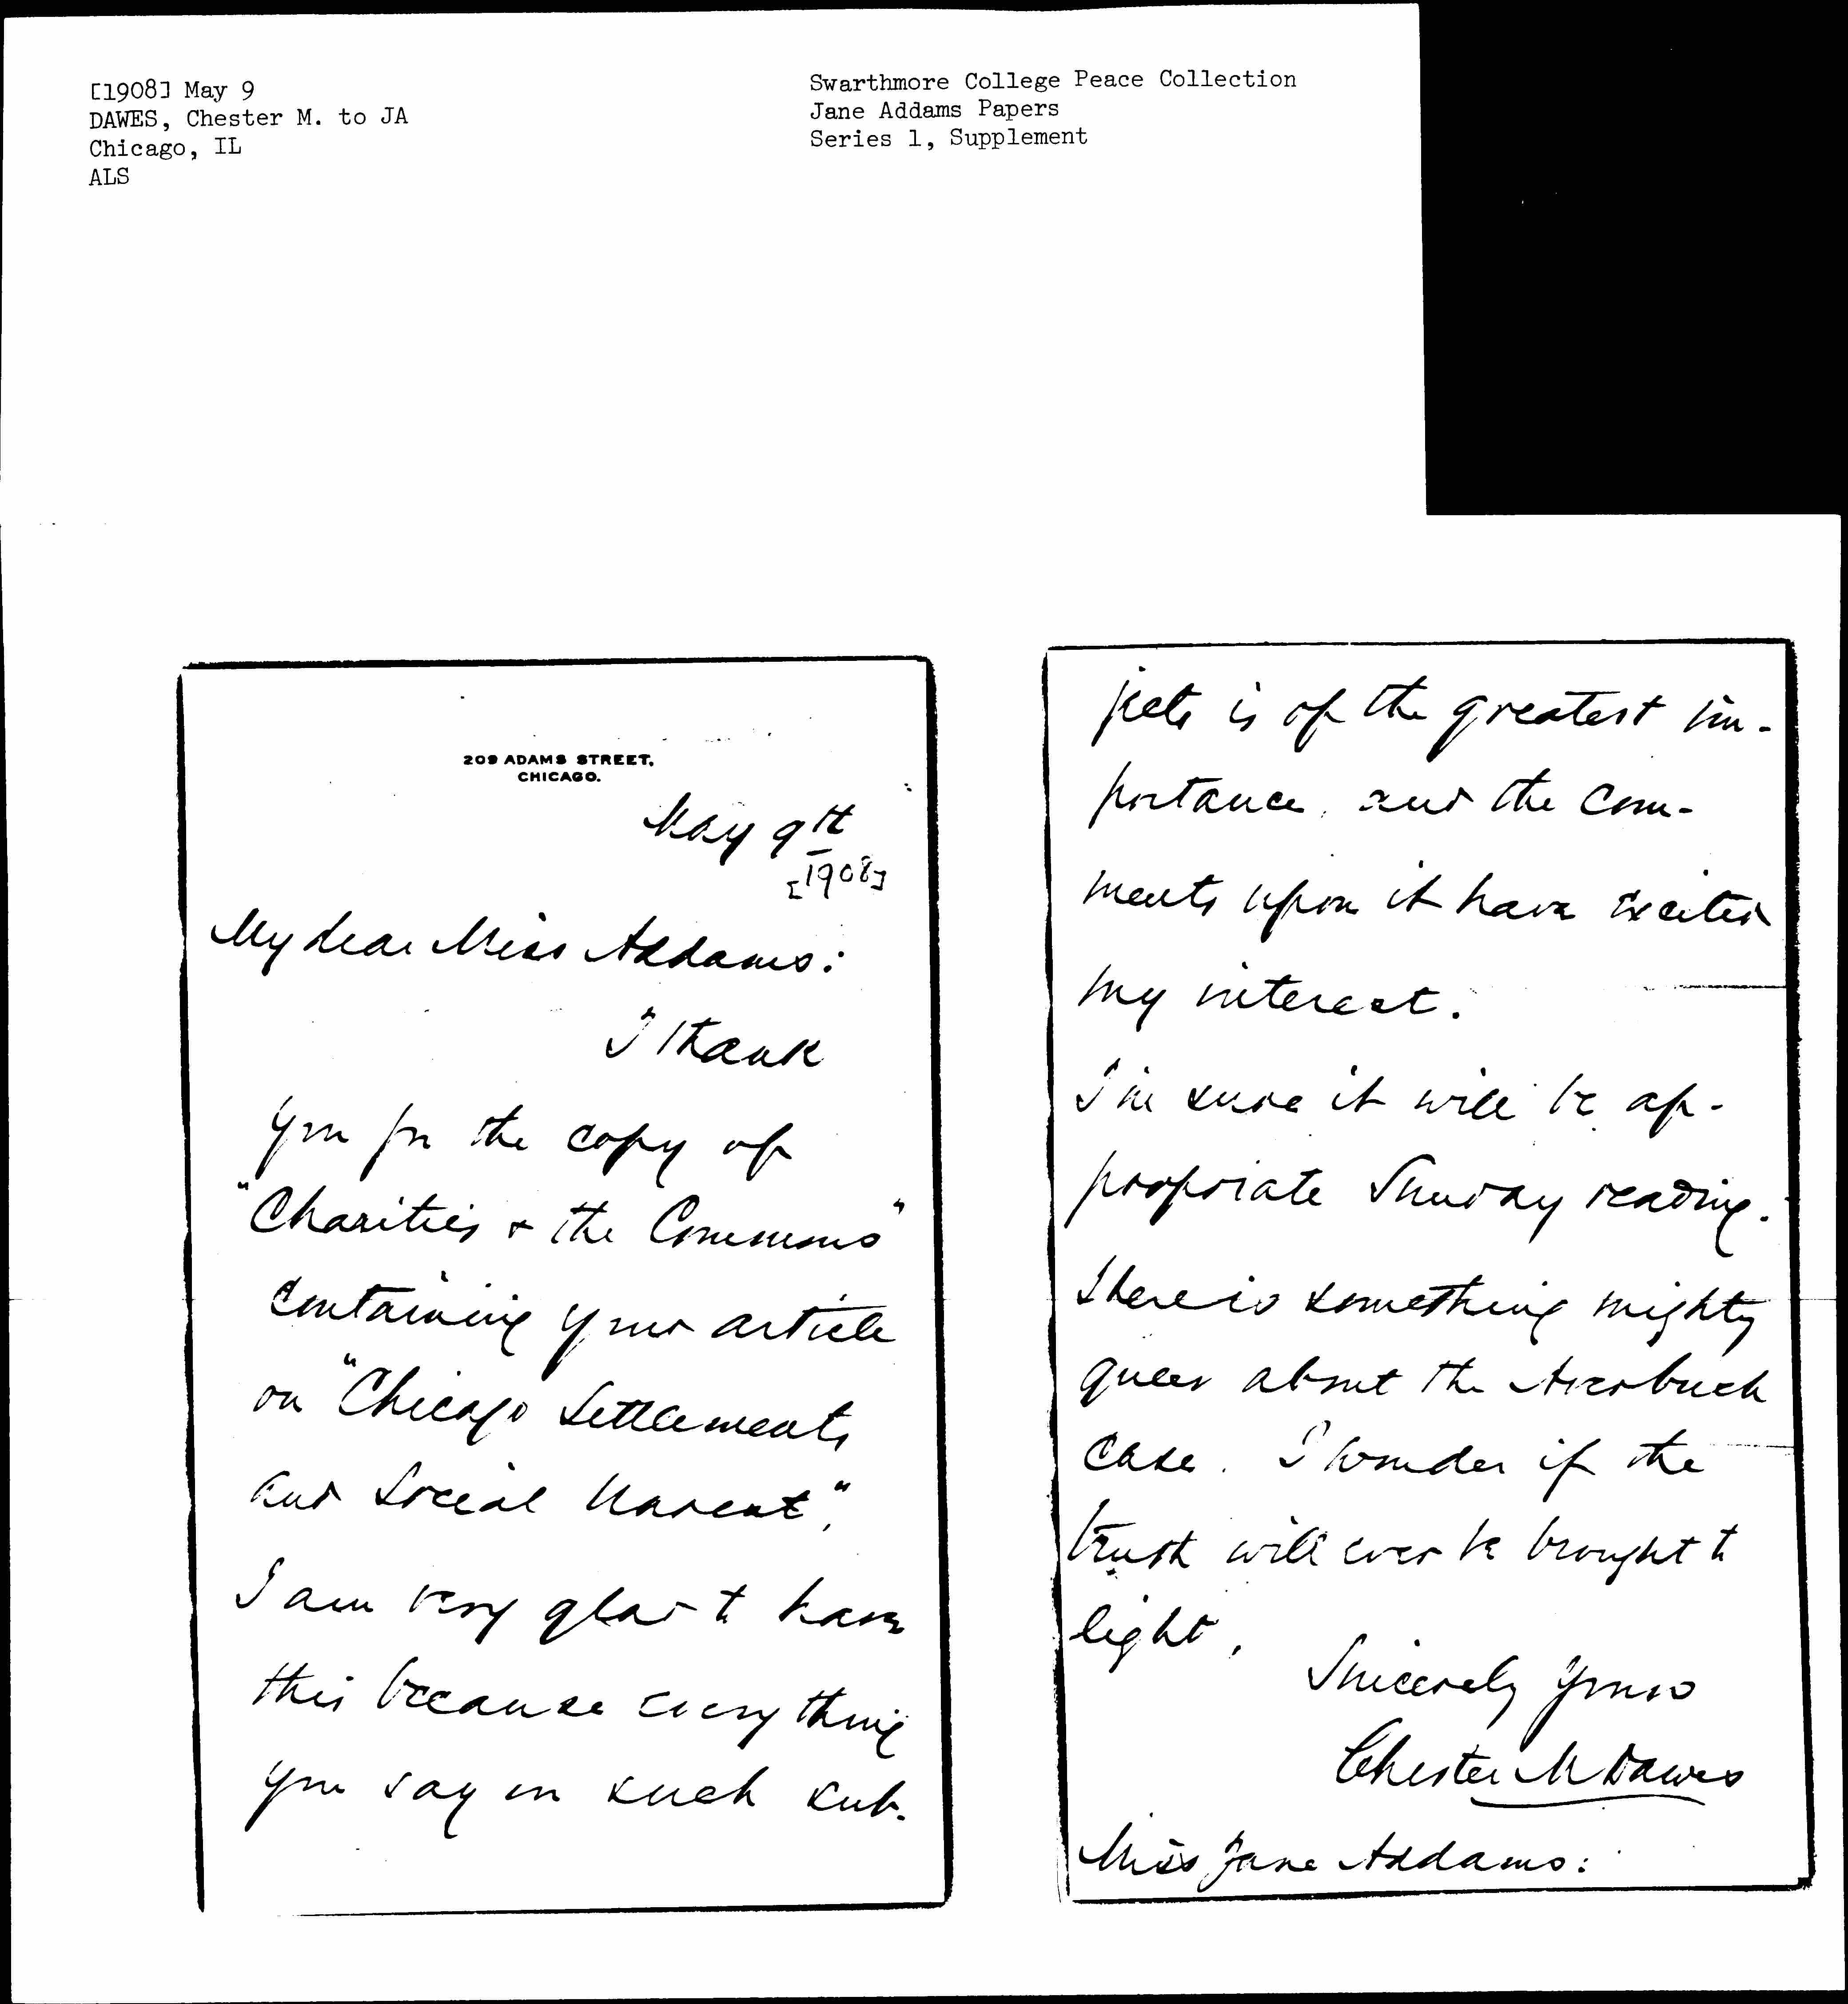 [1908] May 9
DAWES, Chester M. to JA
Chicago, IL
ALS
Swarthmore College Peace Collection
Jane Addams Papers
Series 1, Supplement
209 ADAMS STREET,
CHICAGO.
May 9th
[1908]
My dear Miss Addams:
I thank
you for the copy of
"Charities & the Commons"
containing your article
on "Chicago Settlements
and Social Unrest".
I am very glad to have
this because everything
you say on such sub-
jects is of the greatest im-
portance, and the com-
ments upon it have excited
my interest.
I'm sure it will be ap-
propriate Sunday reading.
There is something mighty
queer about the Averbuch
case. I wonder if the
truth will ever be brought to
light.
Sincerely yours
Chester M Dawes
Miss Jane Addams: